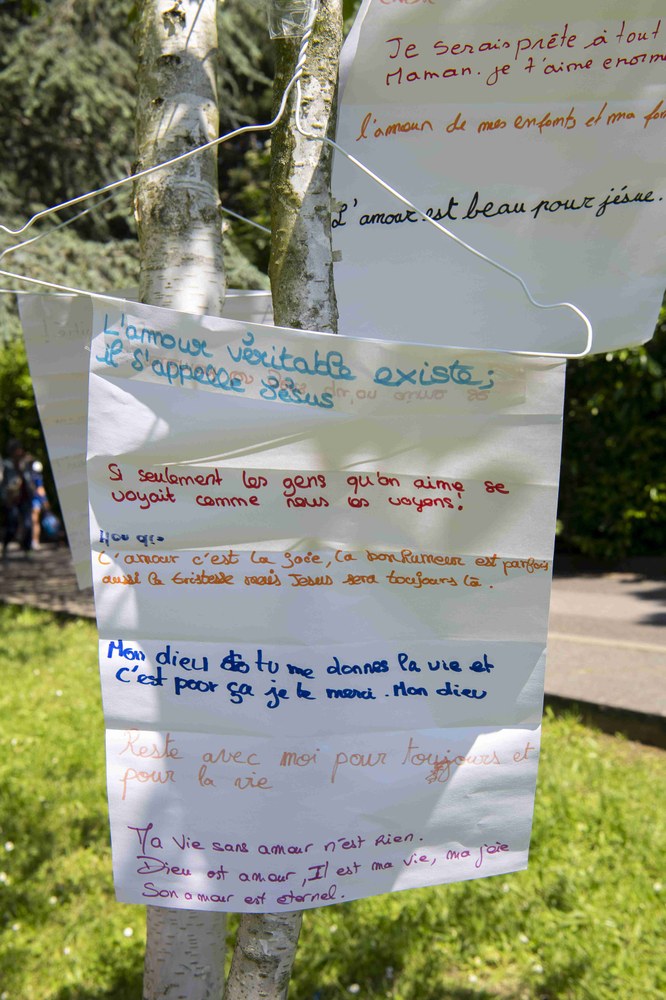 Je serais prête à tout
Maman. je t'aime enorm
l'amour de mes enfants et ma fam
L'amour est beau pour jésue.
L'amour véritable existe;
il s'appelle Jésus
Si seulement les gens qu'on aime se
voyait comme nous les voyons!
Mon die
L'amour c'est la joie, la bonhumeur est parfois
aussi la tristesse mais Jesus sera toujours là.
Mon dieu tu me donnes la vie et
C'est pour ça je te merci. Mon dieu
Reste avec moi pour toujours et
pour la vie
Ma vie sans amour n'est rien.
Dieu est amour, Il est ma vie, ma joie
Son amour est eternel.